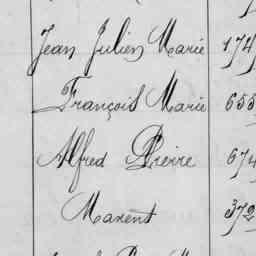 Jean Julien Marie 174
François Marie 655
Alfred Pierre 674
Marent 372